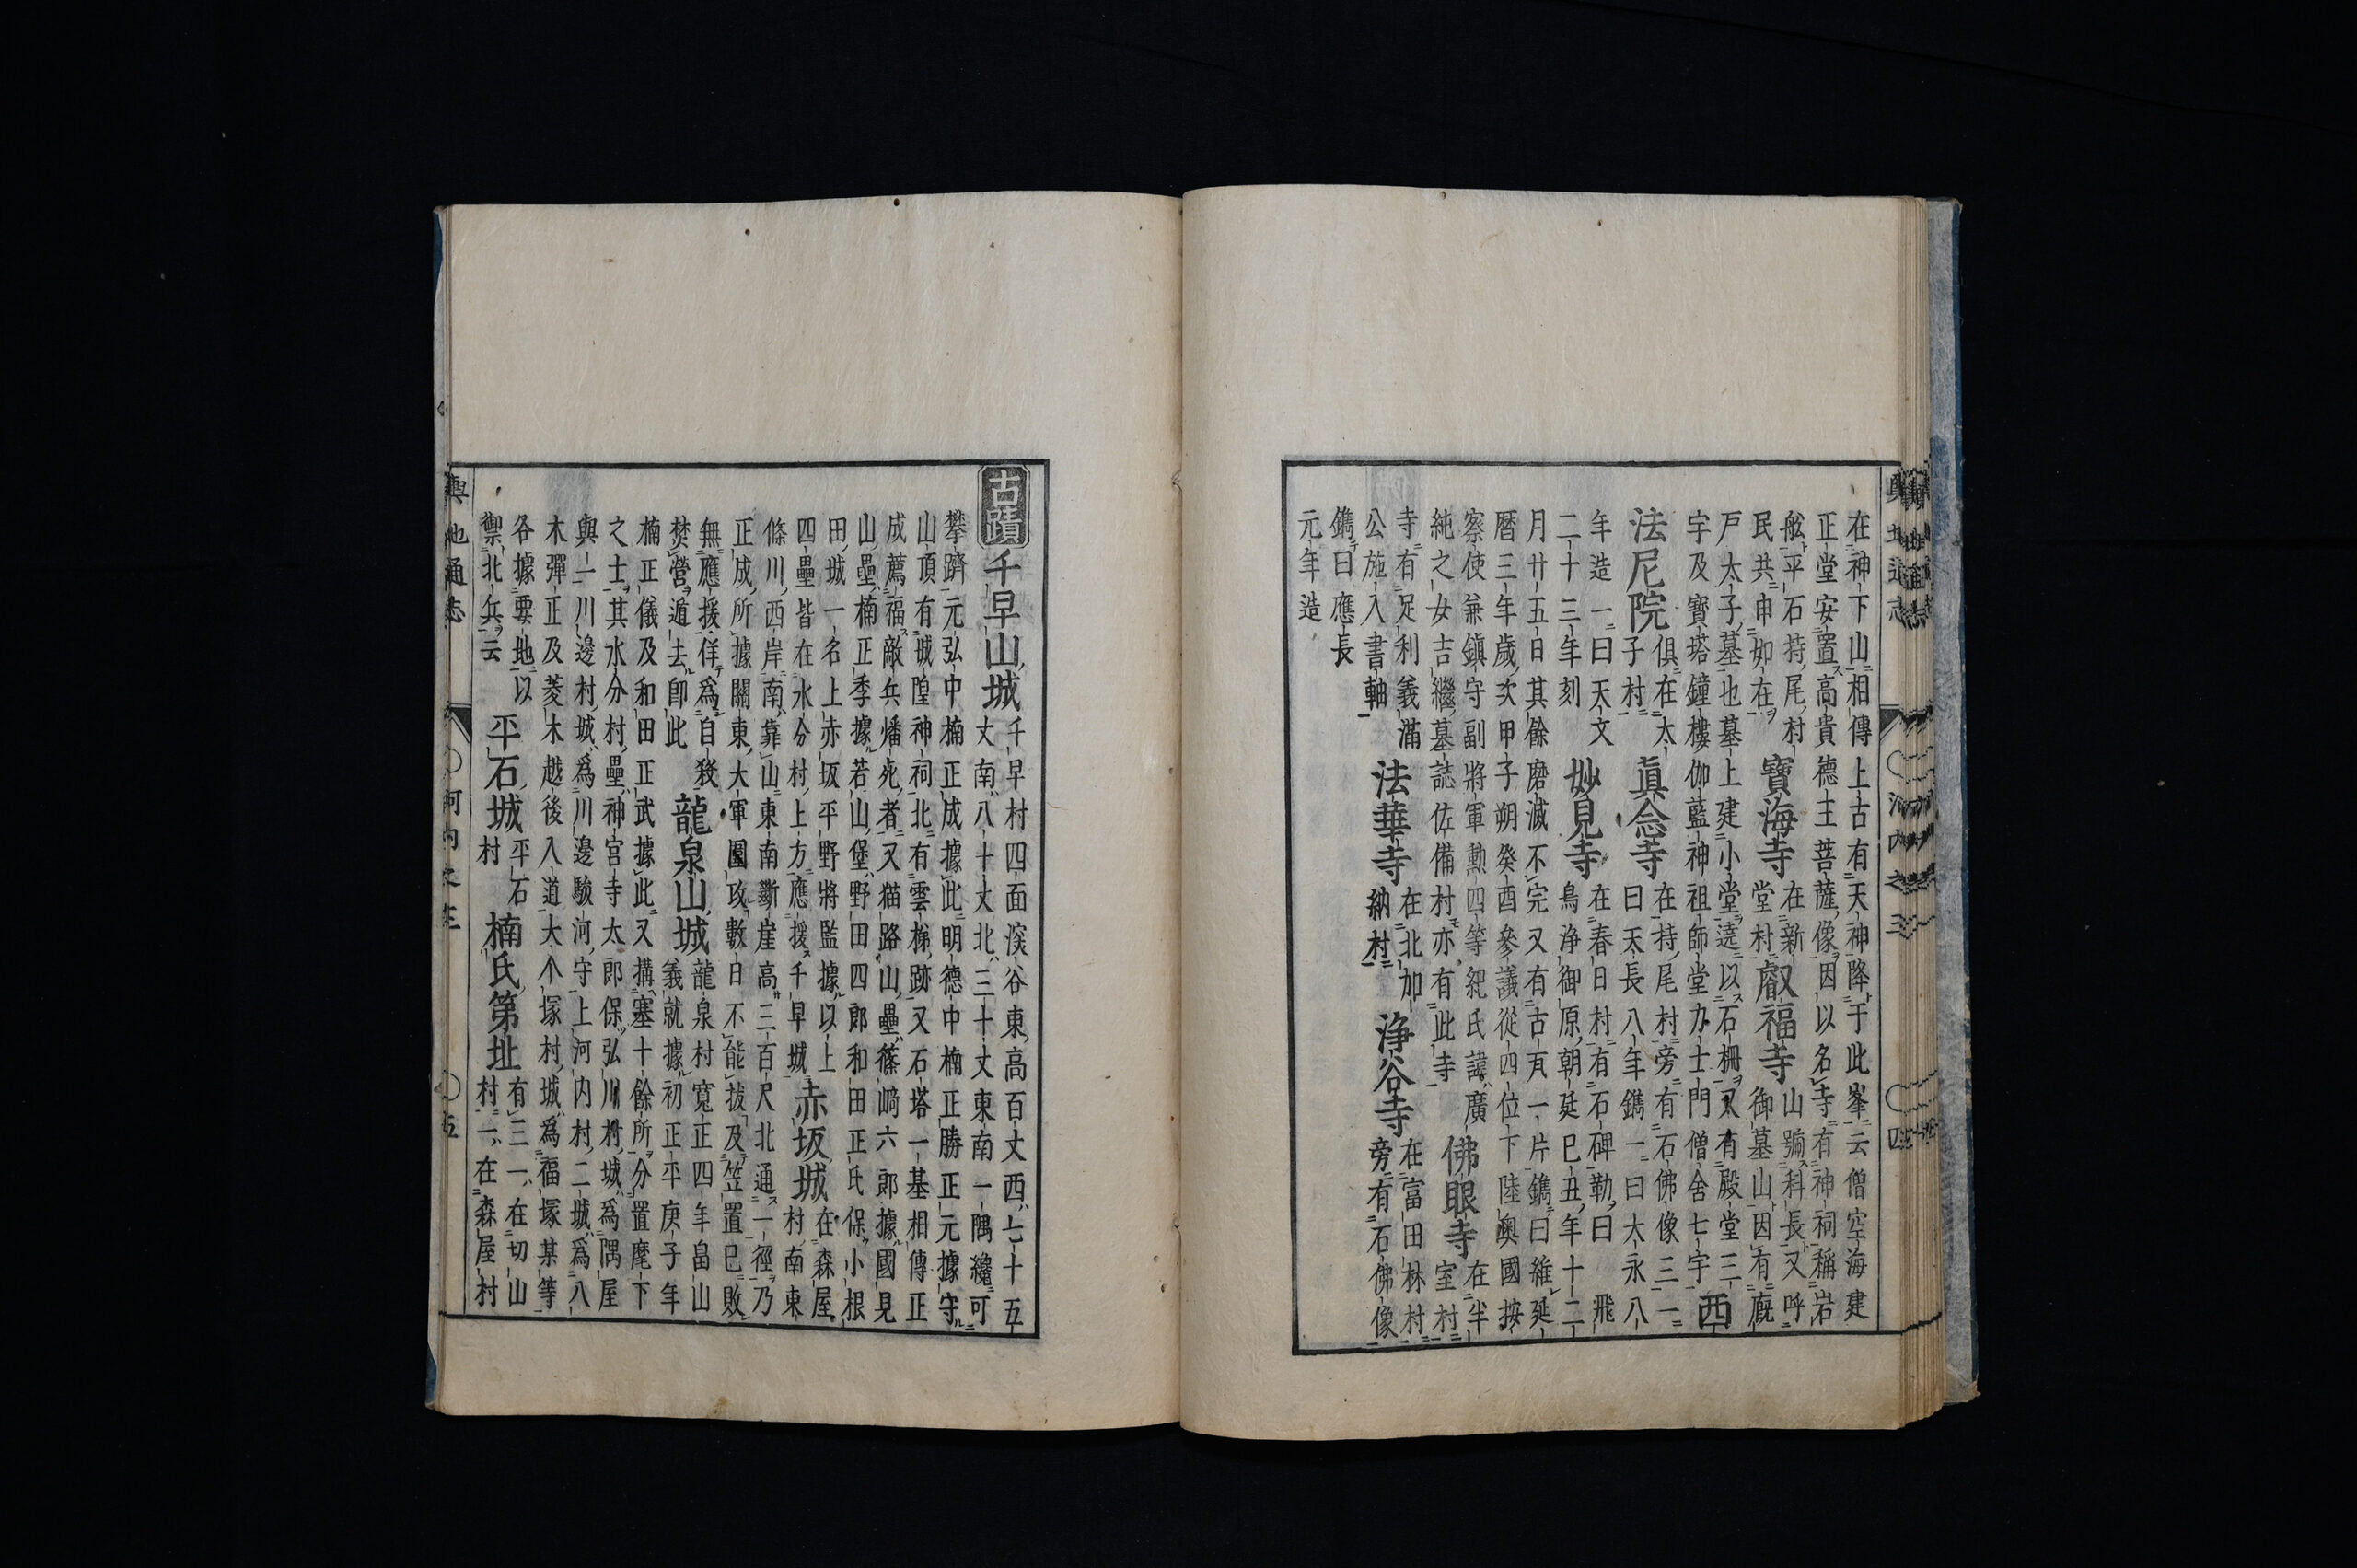 在神下山相傳上古有天神降于此峯云僧空海建
正堂安置高貴德王菩薩像因以名寺有神祠稱岩
舩平石持尾村
民共申如在
寶海寺
在新
堂村
叡福寺
山號科長又呼
御墓山因有廐
戸太子墓也墓上建小堂遶以石柵又有殿堂三
宇及寶塔鐘樓伽藍神祖師堂力士門僧舍七宇
西
法尼院
俱在太
子村
眞念寺
在持尾村旁有石佛像三一
曰天長八年鐫一曰大永八
年造一曰天文
二十三年刻
妙見寺
在春日村有石碑勒曰飛
鳥浄御原朝廷巳丑年十二
月廿五日其餘磨滅不完又有古瓦一片鐫曰維延
暦三年歳次甲子朔癸酉參議從四位下陸奥國按
察使兼鎮守副將軍勲四等紀氏諱廣
純之女吉繼墓誌佐備村亦有此寺
佛眼寺
在半
室村
寺有足利義滿
公施入書軸
法華寺
在北加
納村
浄谷寺
在富田林村
旁有石佛像
鐫曰應長
元年造
古蹟
千早山城
千早村四面深谷東高百丈西七十五
丈南八十丈北三十丈東南一隅纔可
攀躋元弘中楠正成據此明德中楠正勝正元據守
山頂有城隍神祠北有雲梯跡又石塔一基相傳正
成薦福敵兵燔死者又猫路山壘篠﨑六郎據國見
山壘楠正季據若山堡野田四郎和田正氏保小根
田城一名上赤坂平野將監據以上
四壘皆在水分村上方應援千早城
赤坂城
在森屋
村南東
條川西岸南靠山東南斷崖高三百尺北通一徑乃
正成所據關東大軍圍攻數日不能拔及笠置已敗
無應援佯爲自殺
焚營遁去卽此
龍泉山城
龍泉村寛正四年畠山
義就據初正平庚子年
楠正儀及和田正武據此又搆塞十餘所分置麾下
之士其水分村壘神宮寺太郎保弘川村城爲隅屋
與一川邊村城爲川邊駿河守上河内村二城爲八
木彈正及菱木越後入道大个塚村城爲福塚某等
各據要地以
禦北兵云
平石城
平石
村
楠氏第址
有三一在切山
村一在森屋村
輿地通志 ○河内之三 ○五